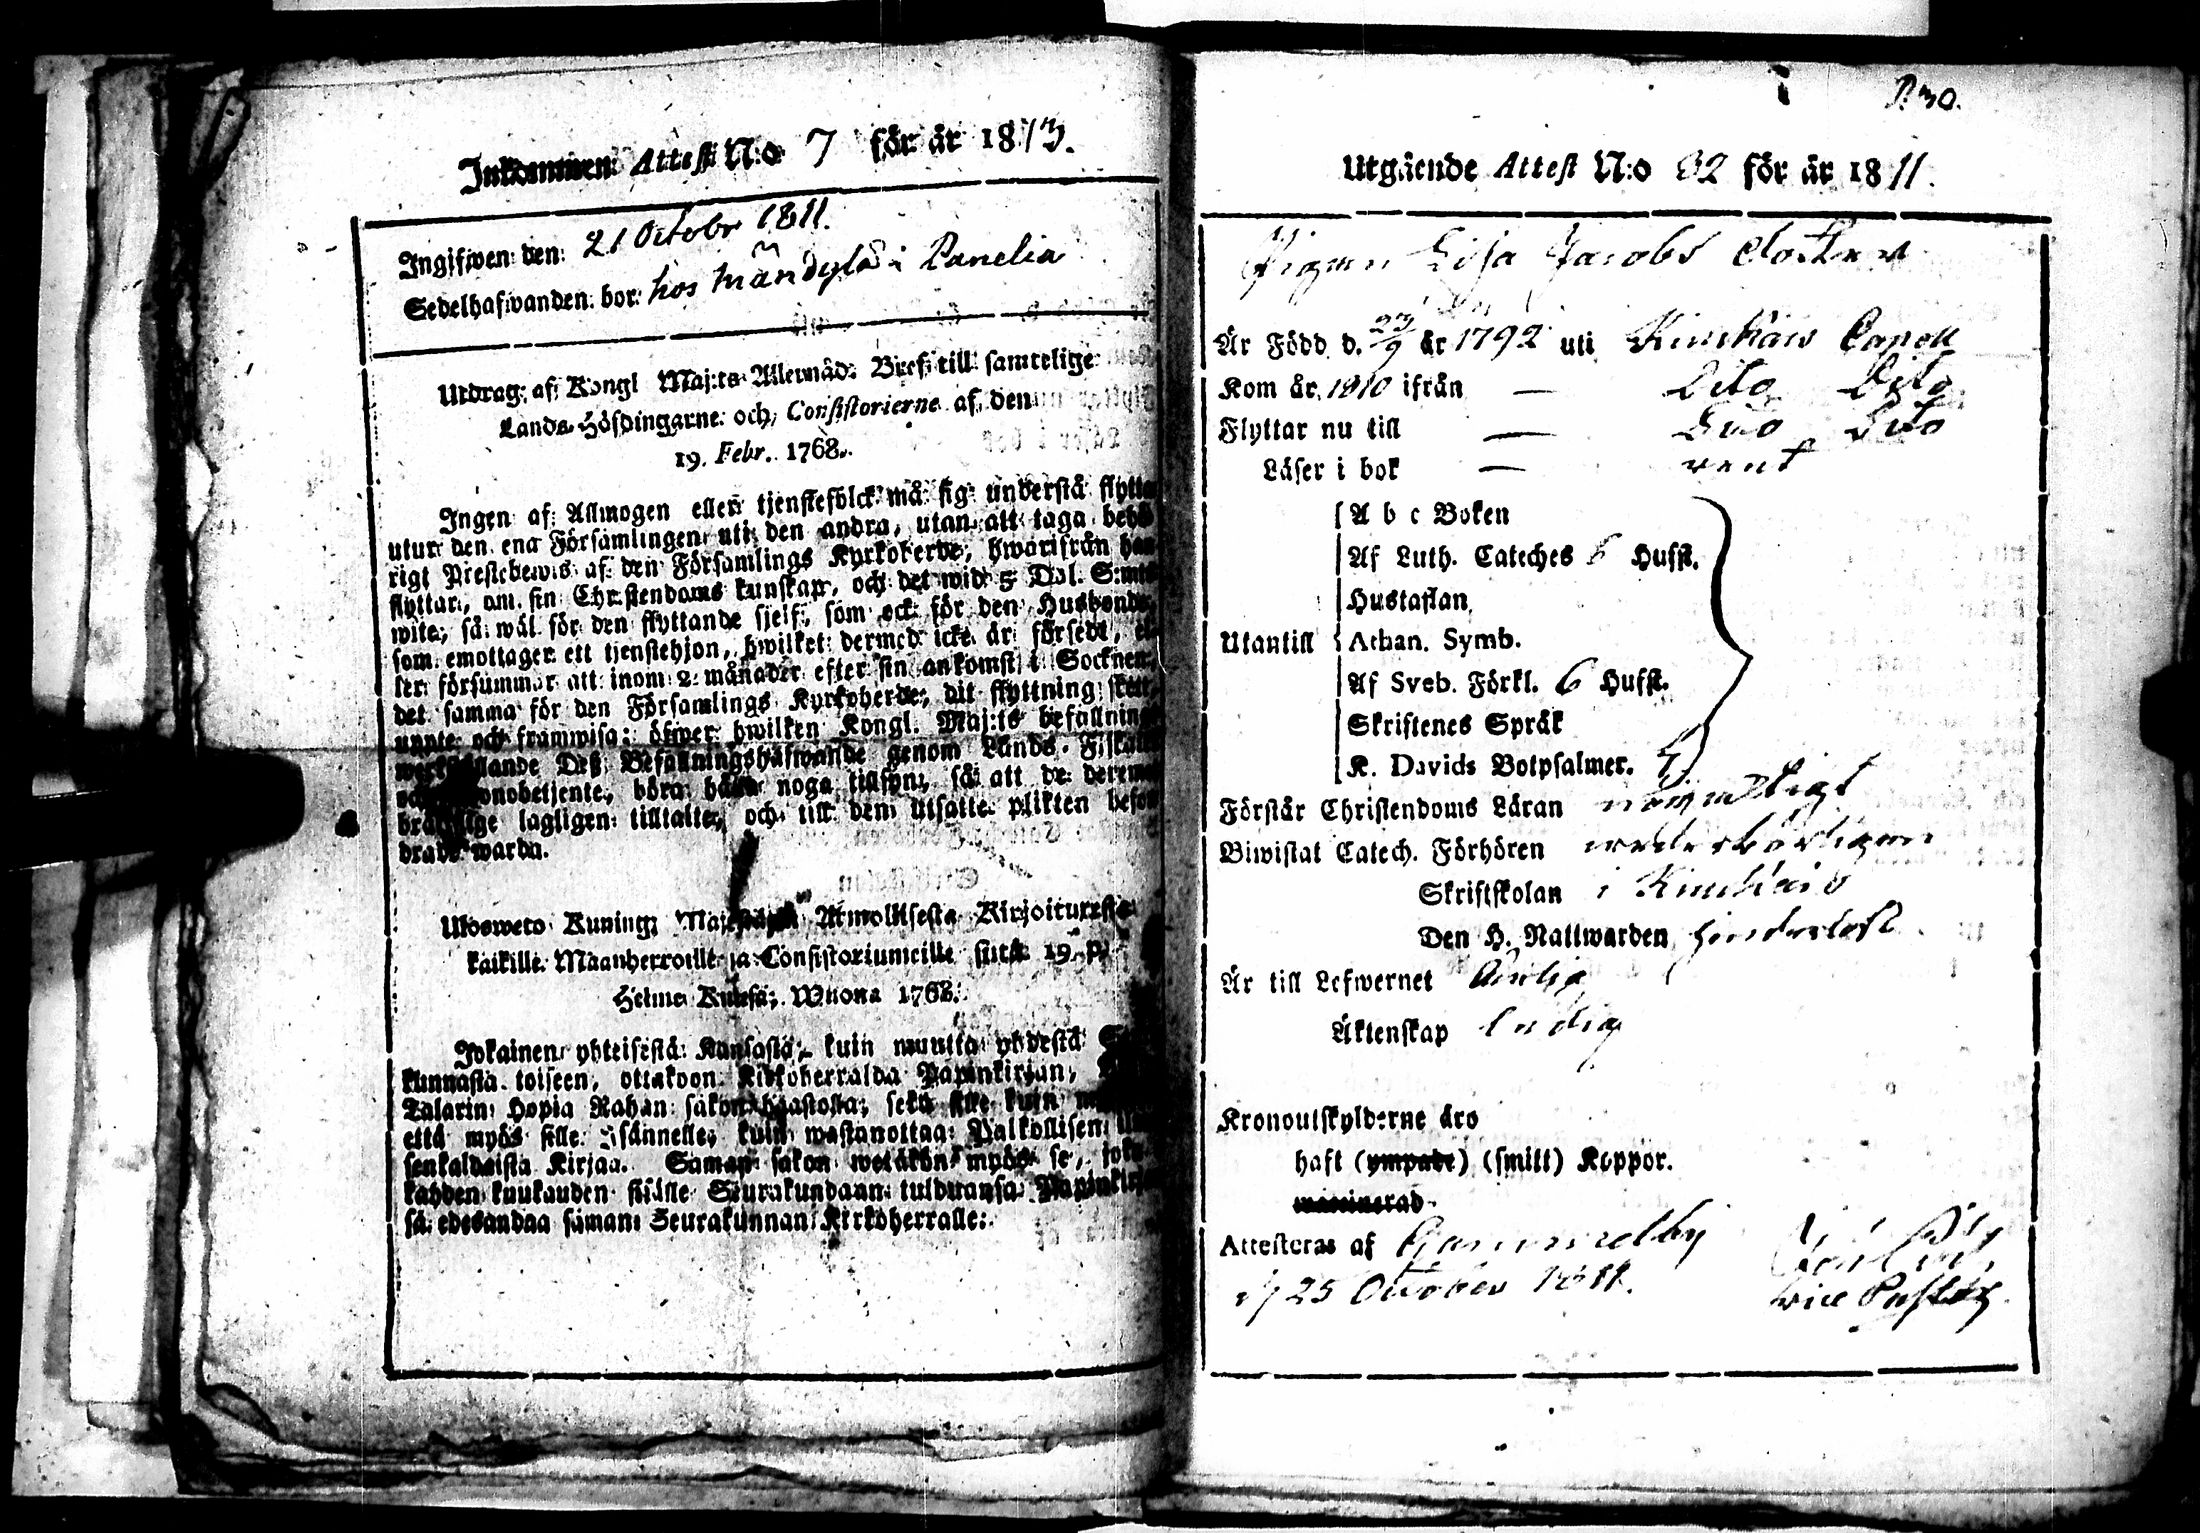 Inkommen Attest N:o 7 för år 1813.
Ingifwen den 21 Octobr 1811.
Sedelhafwanden bor hos Mändylä i Panelia
Utdrag af Kongl Maj:ts Allernåd. Bref till samtelige
Lands-Höfdingarne och Consistorierne af den
19. Febr. 1768.
Ingen af Allmogen eller tjenstefolck må sig understå flytta
utur den ena Församlingen uti den andra, utan att taga behö
rigt Prestebewis af den Församlings Kyrkoherde, hwarifrån han
flyttar, om sin Christendoms kunskap, och det wid 5 Dal. S:mts
wite, så wäl för den flyttande sjelf, som ock för den Husbonde,
som emottager ett tjenstehjon, hwilket dermed icke är försedt, el-
ler försummar att inom 2 månader efter sin ankomst i Socknen,
det samma för den Församlings Kyrkoherde, dit flyttning skett,
uppte och framwisa; öfwer hwilken Kongl. Maj:ts befallning
werkställande Deß Befallningshafwande genom Lands-Fiskaler
onobetjente, böra hafwa noga tillsyn, så att de deremot
lagligen tilltaltes, och till den utsatte plikten befor
drade warda.
Ulosweto Kuning: Majestätin Armollisesta Kirjoituxesta
kaikille Maanherroille ja Consistoriumeille siitä 19. p.
Helme Kuusa, Wuona 1768.
Jokainen yhteisestä Kansasta, kuin muutta yhdestä
kunnasta toiseen, ottakoon Kirkoherralda Papinkirjan,
Talarin Hopia Rahan sakon haastolla, sekä sille kuin
että myös sille Isännelle, kuin wastanottaa Palkollisen
senkaldaista Kirjaa. Saman sakon wetäkön myös se, joka
kahden kuukauden sisälle Seurakundaan tulduansa Papinkirj
sä edesandaa saman Seurakunnan Kirkoherralle.
P. 30.
Utgående Attest N:o 32 för år 1811.
Pigan Lisa Jacobs dotter
Är Född d. 23/9 år 1792 uti Kiukais Capell
Kom år 1810 ifrån — Dito Dito
Flyttar nu till — Dito Dito
Läser i bok — rent
A b c Boken
Af Luth. Cateches 6 Hufst.
Hustaflan
Utantill Athan. Symb.
Af Sveb. Förkl. 6 Hufst.
Skriftenes Språk
K. Davids Botpsalmer.
Förstår Christendoms Läran nöjaktigt
Biwistat Catech. Förhören wederbörligen
Skriftskolan i Kiukais
Den H. Nattwarden hinderlöst
Är till Lefwernet ärlig
Äktenskap ledig
Kronoutskylderne äro
haft (ympade) (smitt) Koppor.
waccinerad
Attesteras af Gammelby
d 25 October 1811.
vice Pastor